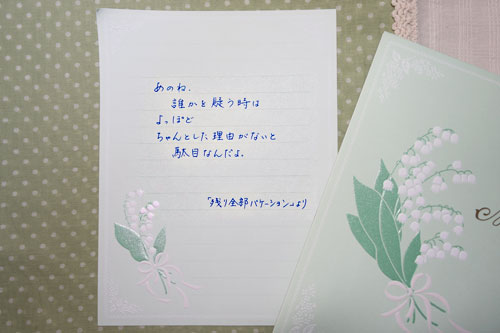 あのね、
誰かを疑う時は
よっぽど
ちゃんとした理由がないと
駄目なんだよ。
「残り全部バケーション」より